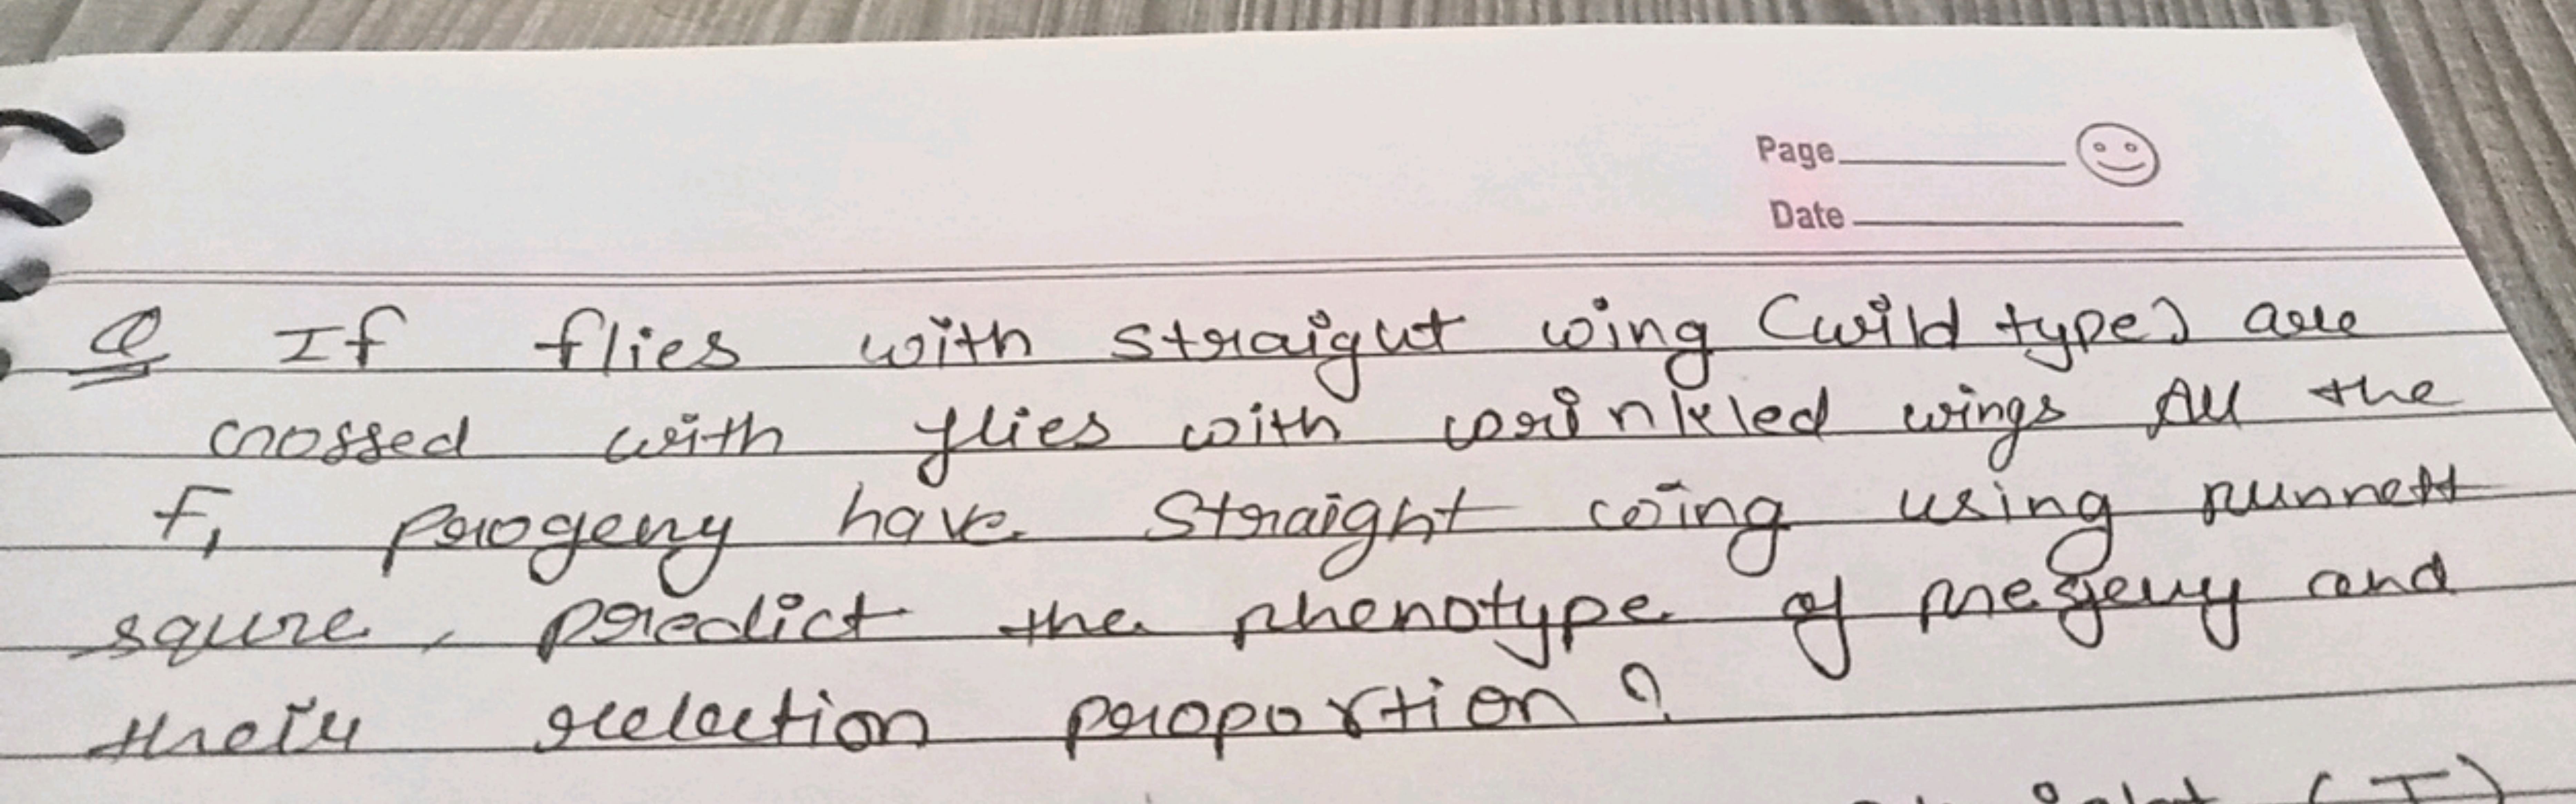 Page
Date
Q If flies with straigut wing (wild type) are
crossed with flies with wrinkled wings All the
F1 progeny have straight wing using punnett
squre, predict the phenotype of and
their proportion?
(I)